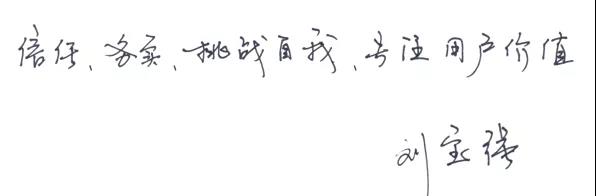 信任、务实、挑战自我、专注用户价值
刘宝强